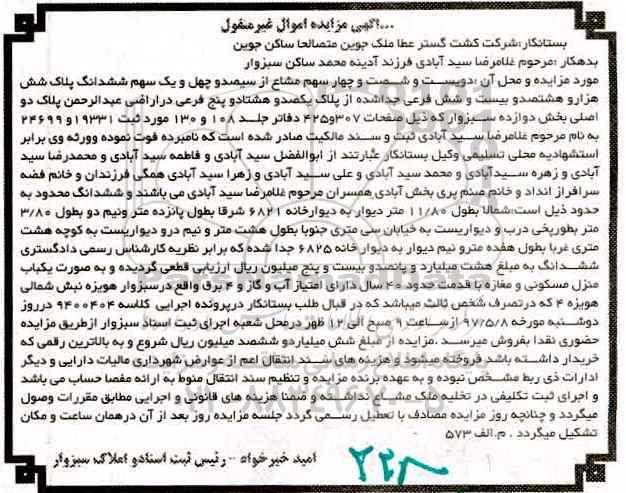 ...آگهی مزایده اموال غیرمنقول
بستانکار:شرکت کشت گستر عطا ملک جوین متصالحا ساکن جوین
بدهکار :مرحوم غلامرضا سید آبادی فرزند آدینه محمد ساکن سبزوار
مورد مزایده و محل آن :دویست و شصت و چهار سهم مشاع از سیصدو چهل و یک سهم ششدانگ پلاک شش
هزارو هشتصدو بیست و شش فرعی جداشده از پلاک یکصدو هشتادو پنج فرعی دراراضی عبدالرحمن پلاک دو
اصلی بخش دوازده سبزوار که ذیل صفحات ۳۰۷و۴۲۵ دفاتر جلد ۱۰۸ و ۱۳۰ مورد ثبت ۱۹۳۳۱و ۲۴۶۹۹
به نام مرحوم غلامرضا سید آبادی ثبت و سند مالکیت صادر شده است که نامبرده فوت نموده وورثه وی برابر
استشهادیه محلی تسلیمی وکیل بستانکار عبارتند از ابوالفضل سید آبادی و فاطمه سید آبادی و محمدرضا سید
آبادی و زهره سیدآبادی و محمد سید آبادی و علی سید آبادی و زهرا سید آبادی همگی فرزندان و خانم فضه
سرافراز انداد و خانم صنم بری بخش آبادی همسران مرحوم غلامرضا سید آبادی می باشند و ششدانگ محدود به
حدود ذیل است:شمالا بطول ۱۱/۸۰ متر دیوار به دیوارخانه ۶۸۲۱ شرقا بطول پانزده متر ونیم دو بطول ۳/۸۰
متر بطورپخی درب و دیواریست به خیابان سی متری جنوبا بطول هشت متر و نیم درو دیواریست به کوچه هشت
متری غربا بطول هفده مترو نیم دیوار به دیوار خانه ۶۸۲۵ جدا شده که برابر نظریه کارشناس رسمی دادگستری
ششدانگ به مبلغ هشت میلیارد و پانصدو بیست و پنج میلیون ریال ارزیابی قطعی گردیده و به صورت یکباب
منزل مسکونی و مغازه با قدمت حدود ۴۰ سال دارای امتیاز آب و گاز و ۴ برق واقع درسبزوار هویزه نبش شمالی
هویزه ۴ که درتصرف شخص ثالث میباشد که در قبال طلب بستانکار درپرونده اجرایی کلاسه ۹۴۰۰۴۰۴ درروز
دوشنبه مورخه ۹۷/۵/۸ ازساعت ۹ صبح الی ۱۲ ظهر درمحل شعبه اجرای ثبت اسناد سبزوار ازطریق مزایده
حضوری نقدا بفروش میرسد .مزایده از مبلغ شش میلیاردو ششصد میلیون ریال شروع و به بالاترین رقمی که
خریدار داشته باشد فروخته میشود و هزینه های سند انتقال اعم از عوارض شهرداری مالیات دارایی و دیگر
ادارات ذی ربط مشخص نبوده و به عهده برنده مزایده و تنظیم سند انتقال منوط به ارائه مفصا حساب می باشد
و اجرای ثبت تکلیفی در تخلیه ملک مشاع نداشته و ضمنا هزینه های قانونی و اجرایی مطابق مقررات وصول
میگردد و چنانچه روز مزایده مصادف با تعطیل رسمی گردد جلسه مزایده روز بعد از آن درهمان ساعت و مکان
تشکیل میگردد . م.الف ۵۷۳
امید خیرخواه – رئیس ثبت اسنادو املاک سبزوار